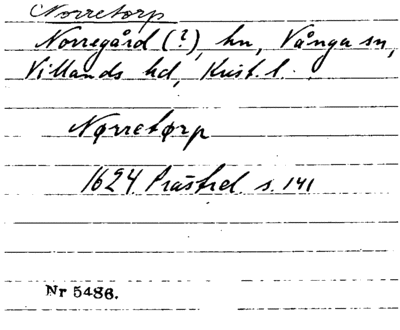 Norretorp
Norregård (?), hn, Vånga sn,
Villands hd, Krist. l.
Nørretørp
1624 Prästrel s. 141
Nr 5486.